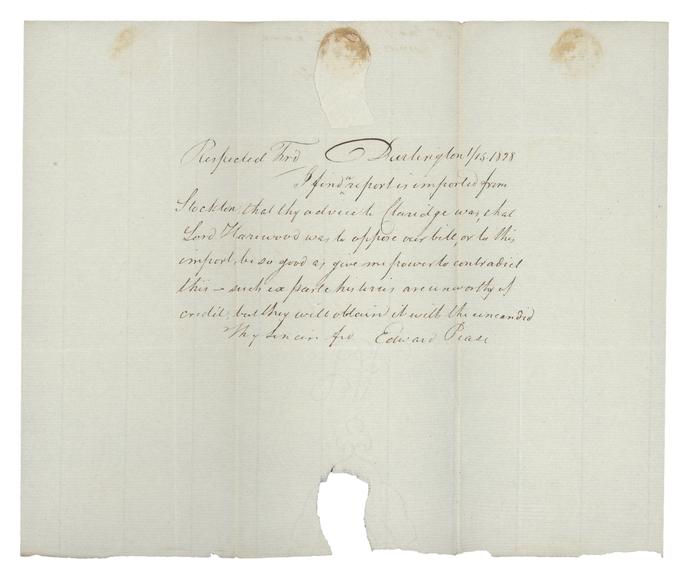 Respected Frd Darlington 1/15 1828
I find a report is imported from
Stockton that thy advice to Claridge was, that
Lord Harewood was to oppose our bill, or to this
import, be so good as give me power to contradict
this - such ex parte histories are unworthy of
credit, but they will obtain it with the uncandid
Thy sincere frd Edward Pease